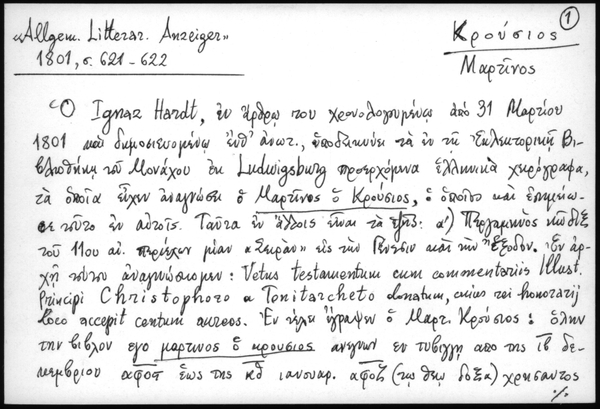 1
«Allgem. Litterar. Anzeiger»
1801, σ. 621-622
Κρούσιος
Μαρτῖνος
Ὁ Ignaz Hardt, ἐν ἄρθρῳ του χρονολογουμένῳ ἀπό 31 Μαρτίου
1801 καὶ δημοσιευομένῳ ἐνθ' ἀνωτ., ὑποδεικνύει τὰ ἐν τῇ Ἐκλεκτορικῇ Βι-
βλιοθήκῃ τοῦ Μονάχου ἐκ Ludwigsburg προερχόμενα ἑλληνικὰ χειρόγραφα,
τὰ ὁποῖα εἶχεν ἀναγνώσει ὁ Μαρτῖνος ὁ Κρούσιος, ὁ ὁποῖος καὶ ἐσημείω-
σε τοῦτο ἐν αὐτοῖς. Ταῦτα ἐν ἄλλοις εἶναι τὰ ἑξῆς: α') Περγαμηνὸς κῶδιξ
τοῦ 11ου αἰ. περιέχων μίαν «Σειρὰν» εἰς τὴν Γένεσιν καὶ τὴν Ἔξοδον. Ἐν ἀρ-
χῇ τούτου ἀναγινώσκομεν: Vetus testamentum cum commentariis Illust.
Principi Christophoro a Tonitarcheto donatum, cuius rei honorarij
loco accepit centum aureos. Ἐν τέλει ἔγραψεν ὁ Μαρτ. Κρούσιος: ὅλην
την βιβλον εγο μαρτινος ὁ κρουσιος ανεγνων εν τυβιγγῃ απο της ιβ δε-
κεμβριου αφοστ ἑως της κθ ιανουαρ. αφοζ (τῳ θεῳ δοξα) χρησαντος
%